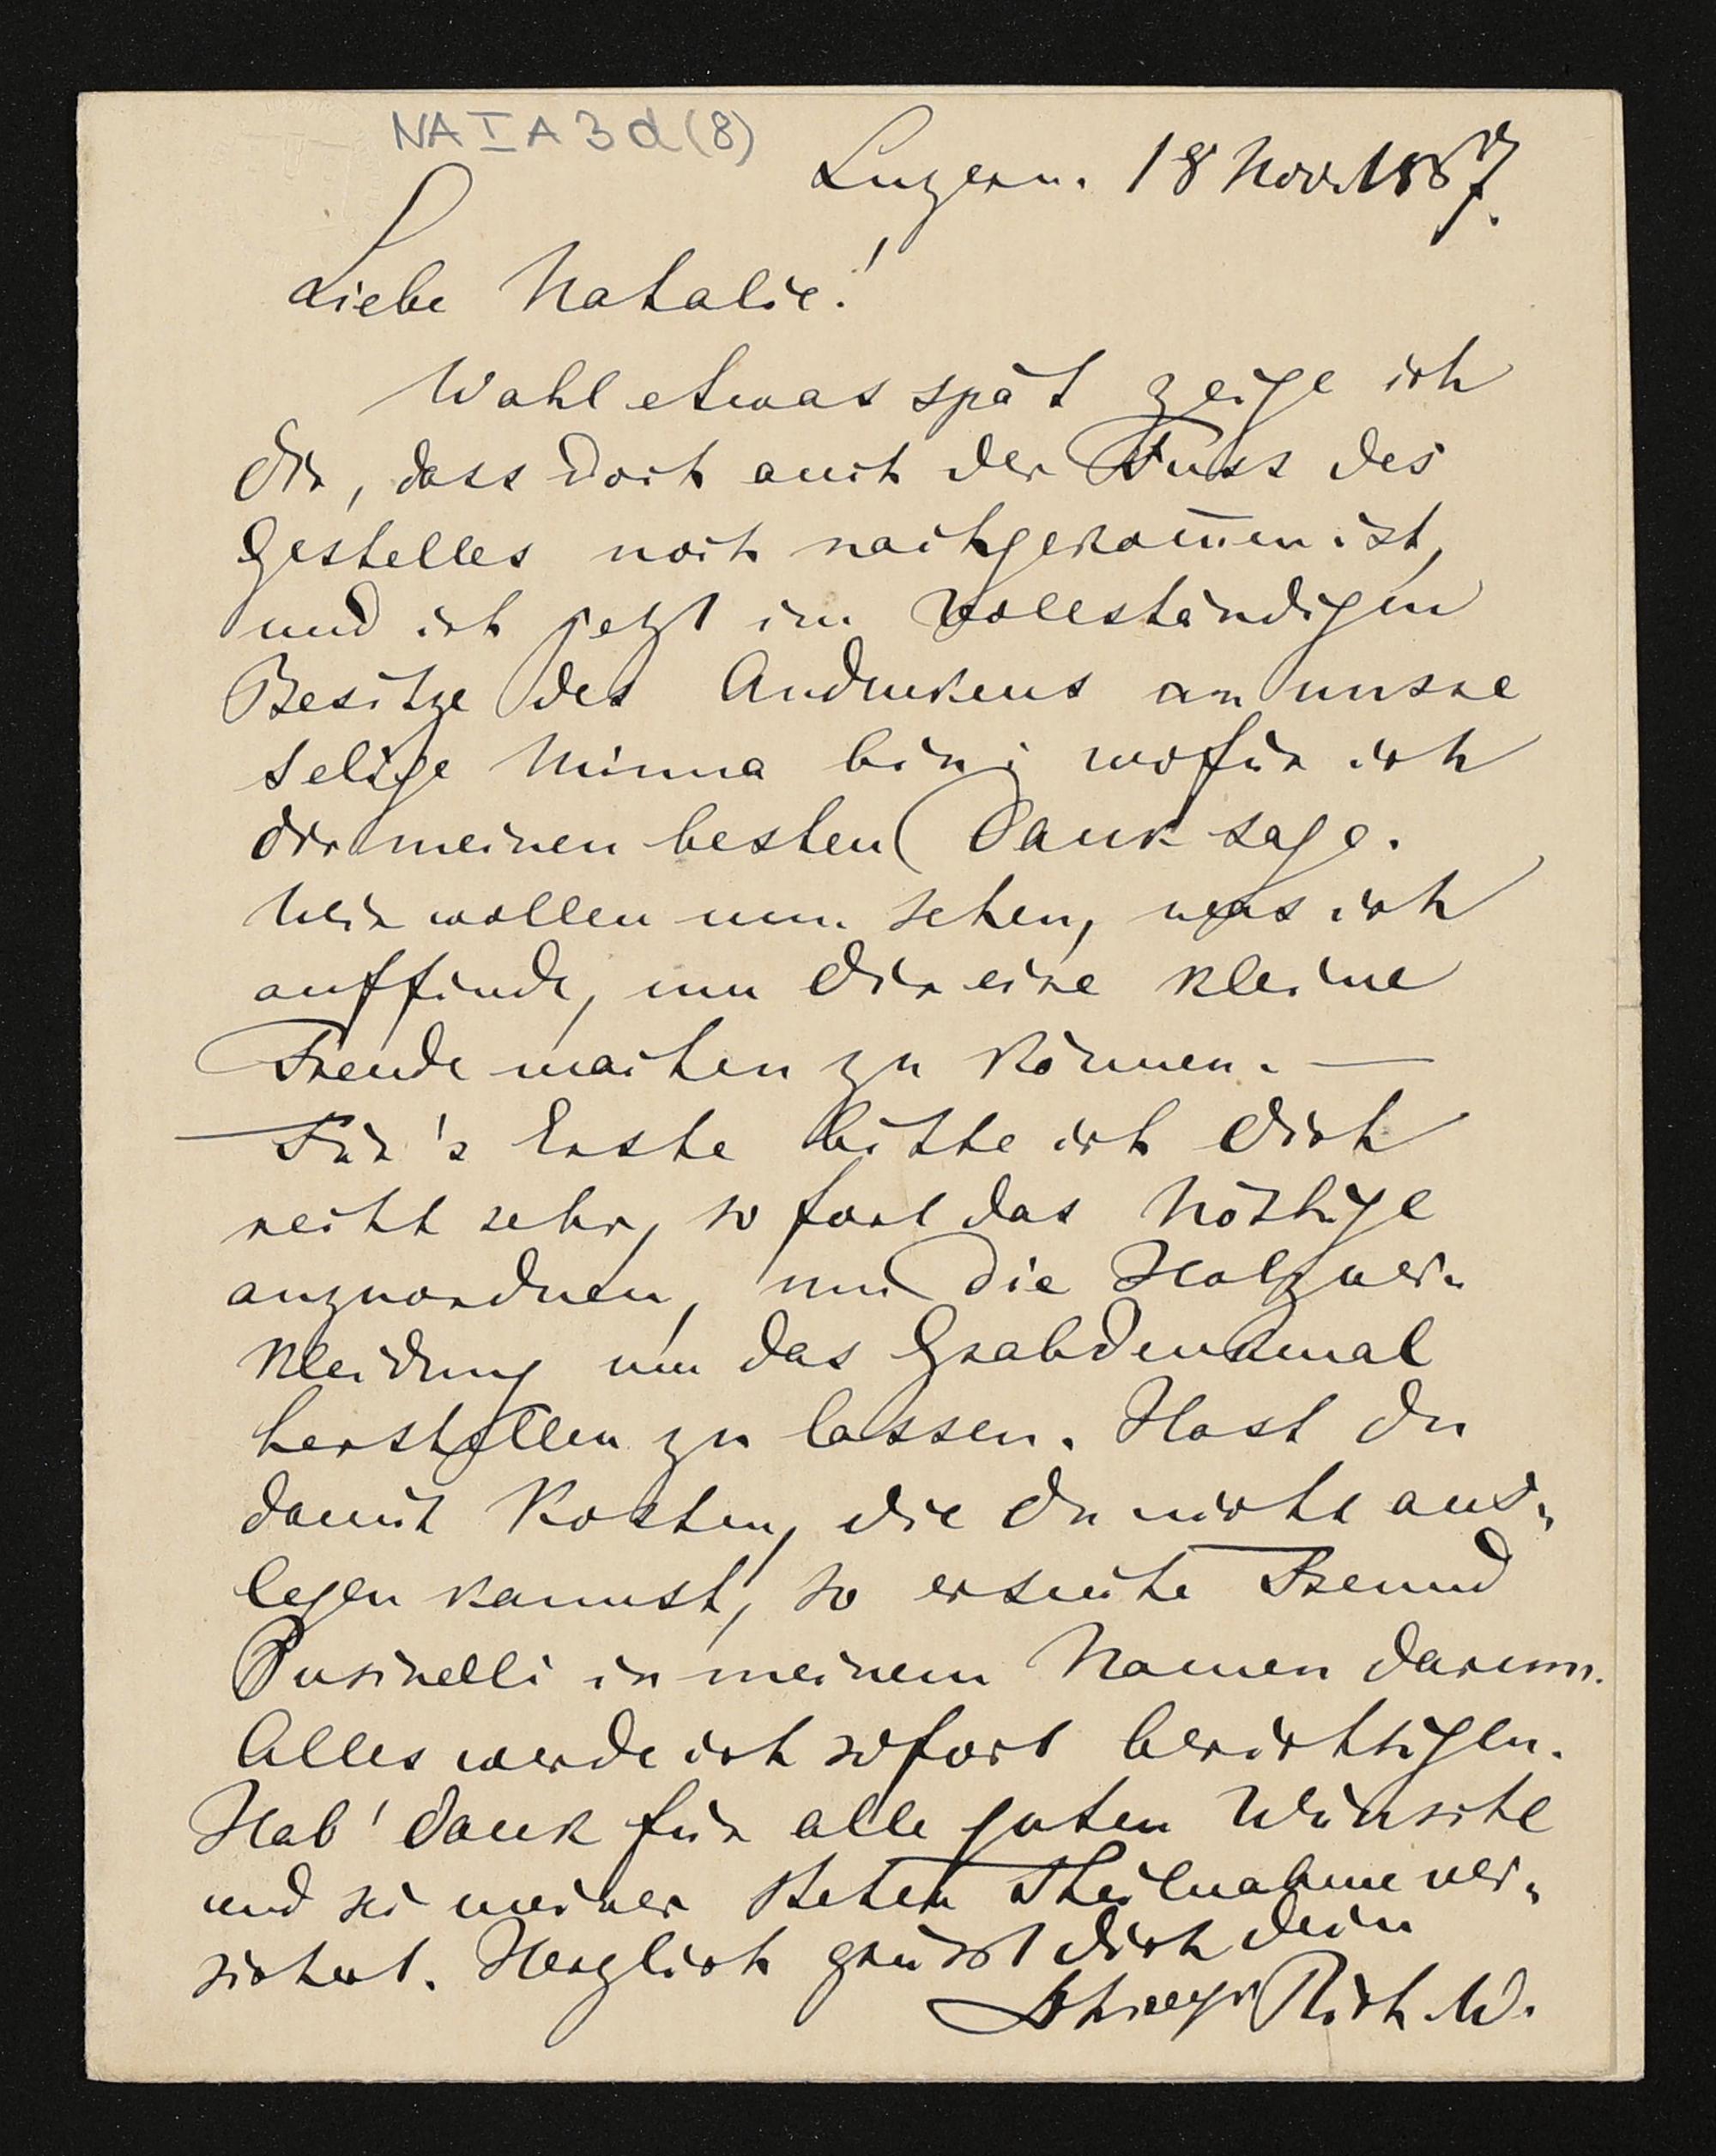 NA I A 3 d (8)
Luzern. 18 Nov. 1867.
Liebe Natalie!
Wohl etwas spät zeige ich
dir, dass doch auch der Fuss des
Gestelles noch nachgekom̅en ist,
und ich jetzt im vollständigen
Besitze des Andenkens an unsre
selige Minna bin; wofür ich
dir meinen besten Dank sage.
Wir wollen nun sehen, was ich
auffinde, um dir eine kleine
Freude machen zu können. —
— Für's Erste bitte ich dich
recht sehr, sofort das Nöthige
anzuordnen, um die Holzver-
kleidung um das Grabdenkmal
herstellen zu lassen. Hast du
damit Kosten, die du nicht aus-
legen kannst, so ersuche Freund
Pusinelli in meinem Namen darum.
Alles werde ich sofort berichtigen.
Hab' Dank für alle guten Wünsche
und sei meiner steten Theilnahme ver-
sichert. Herzlich grüsst dich dein
Schwager Rich. W.